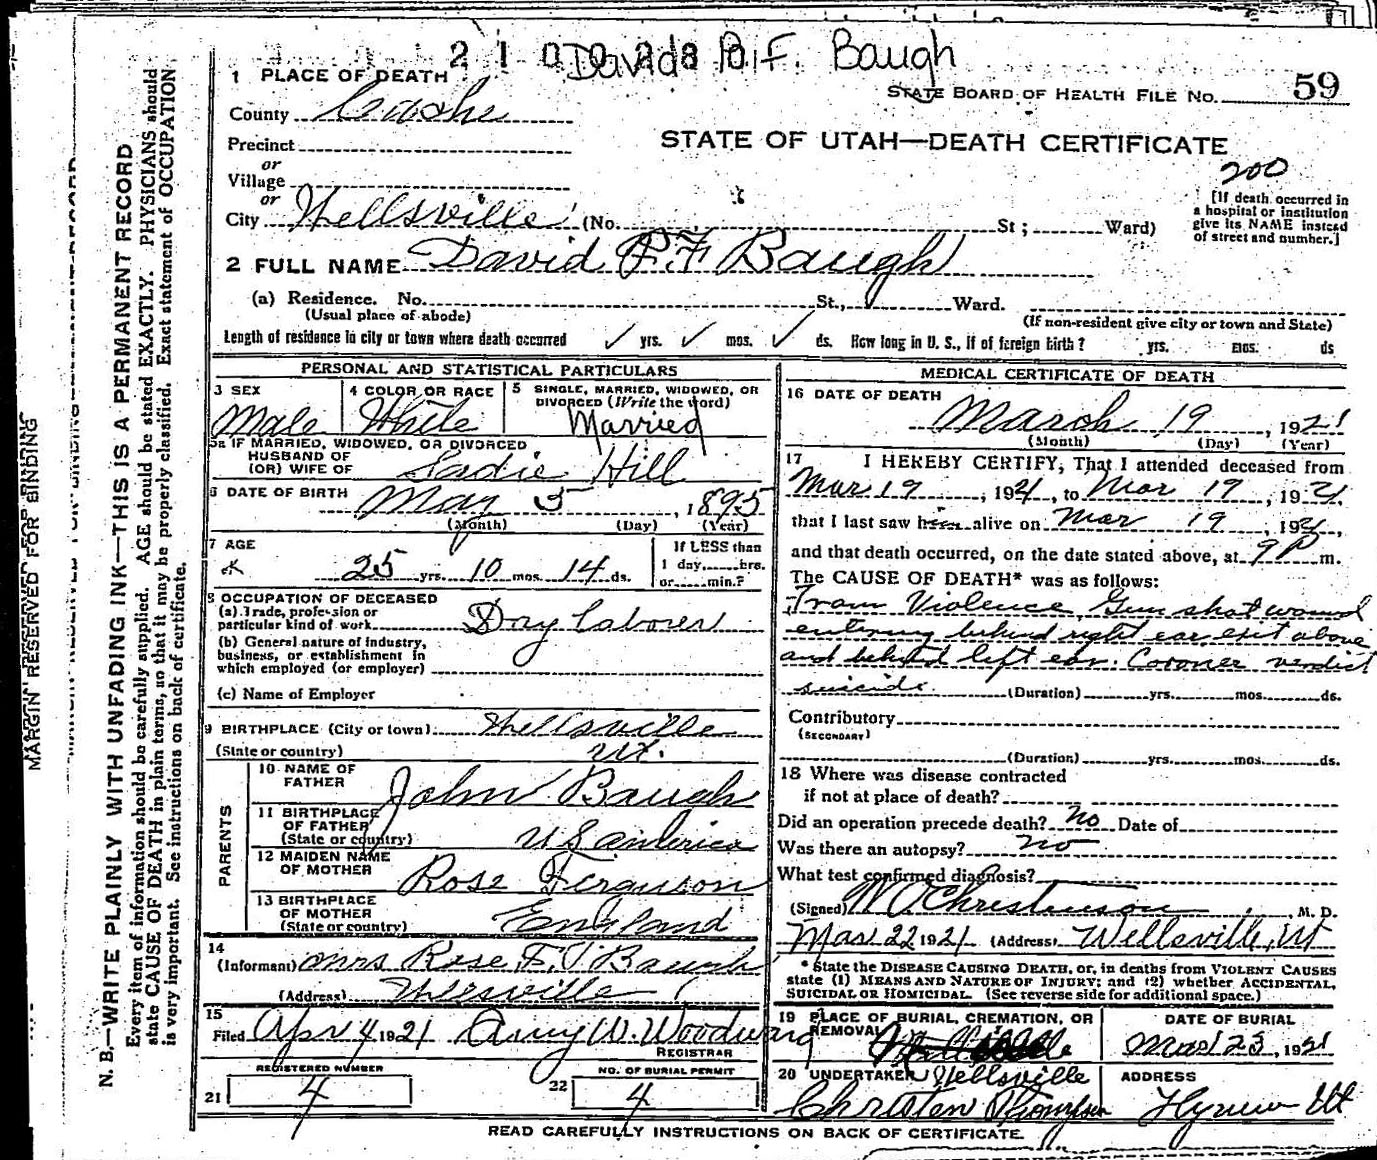 2 1 0 0 2 8 0
David P. F. Baugh
STATE BOARD OF HEALTH FILE NO. 59
1 PLACE OF DEATH
County Cache
STATE OF UTAH—DEATH CERTIFICATE
Precinct
or
Village
200
[If death occurred in
a hospital or institution
give its NAME instead
of street and number.]
or
City Wellsville (No. St; Ward)
2 FULL NAME David P.F Baugh
(a) Residence. No. St., Ward.
(Usual place of abode) (If non-resident give city or town and State)
Length of residence in city or town where death occurred ✓ yrs. ✓ mos. ✓ ds. How long in U. S., if of foreign birth? yrs. mos. ds
PERSONAL AND STATISTICAL PARTICULARS
3 SEX
Male
4 COLOR OR RACE
White
5 SINGLE, MARRIED, WIDOWED, OR
DIVORCED (Write the word)
Married
5a IF MARRIED, WIDOWED, OR DIVORCED
HUSBAND OF
(OR) WIFE OF Sadie Hill
6 DATE OF BIRTH May 5, 1895
(Month) (Day) (Year)
7 AGE
25 yrs. 10 mos. 14 ds.
If LESS than
1 day, hrs.
or min.?
8 OCCUPATION OF DECEASED
(a) Trade, profession or
particular kind of work Day Laborer
(b) General nature of industry,
business, or establishment in
which employed (or employer)
(c) Name of Employer
9 BIRTHPLACE (City or town) Wellsville
(State or country) Ut.
PARENTS
10 NAME OF
FATHER John Baugh
11 BIRTHPLACE
OF FATHER
(State or country) U S america
12 MAIDEN NAME
OF MOTHER Rose Ferguson
13 BIRTHPLACE
OF MOTHER
(State or country) England
14
(Informant) Mrs Rose F. Baugh
(Address) Wellsville
15
Filed Apr 4 1921 Amy W. Woodward
REGISTRAR
REGISTERED NUMBER
21 4
NO. OF BURIAL PERMIT
22 4
MEDICAL CERTIFICATE OF DEATH
16 DATE OF DEATH
March 19, 1921
(Month) (Day) (Year)
17 I HEREBY CERTIFY, That I attended deceased from
Mar 19, 1921, to Mar 19, 1921,
that I last saw h alive on Mar 19, 1921,
and that death occurred, on the date stated above, at 9 P m.
The CAUSE OF DEATH* was as follows:
From Violence, Gun shot wound
entering behind right ear, exit above
and behind left ear. Coroner verdict
suicide. (Duration) yrs. mos. ds.
Contributory
(SECONDARY)
(Duration) yrs. mos. ds.
18 Where was disease contracted
if not at place of death?
Did an operation precede death? No Date of
Was there an autopsy? no
What test confirmed diagnosis?
(Signed) W O Christenson, M. D.
Mar 22 1921 (Address) Wellsville, Ut
* State the DISEASE CAUSING DEATH, or, in deaths from VIOLENT CAUSES
state (1) MEANS AND NATURE OF INJURY; and (2) whether ACCIDENTAL,
SUICIDAL OR HOMICIDAL. (See reverse side for additional space.)
19 PLACE OF BURIAL, CREMATION, OR
REMOVAL
Wellsville
DATE OF BURIAL
Mar 23, 1921
20 UNDERTAKER
Christen Thompson
ADDRESS
Hyrum Ut
READ CAREFULLY INSTRUCTIONS ON BACK OF CERTIFICATE.
MARGIN RESERVED FOR BINDING
N. B.—WRITE PLAINLY WITH UNFADING INK—THIS IS A PERMANENT RECORD
Every item of information should be carefully supplied. AGE should be stated EXACTLY. PHYSICIANS should
state CAUSE OF DEATH in plain terms, so that it may be properly classified. Exact statement of OCCUPATION
is very important. See instructions on back of certificate.